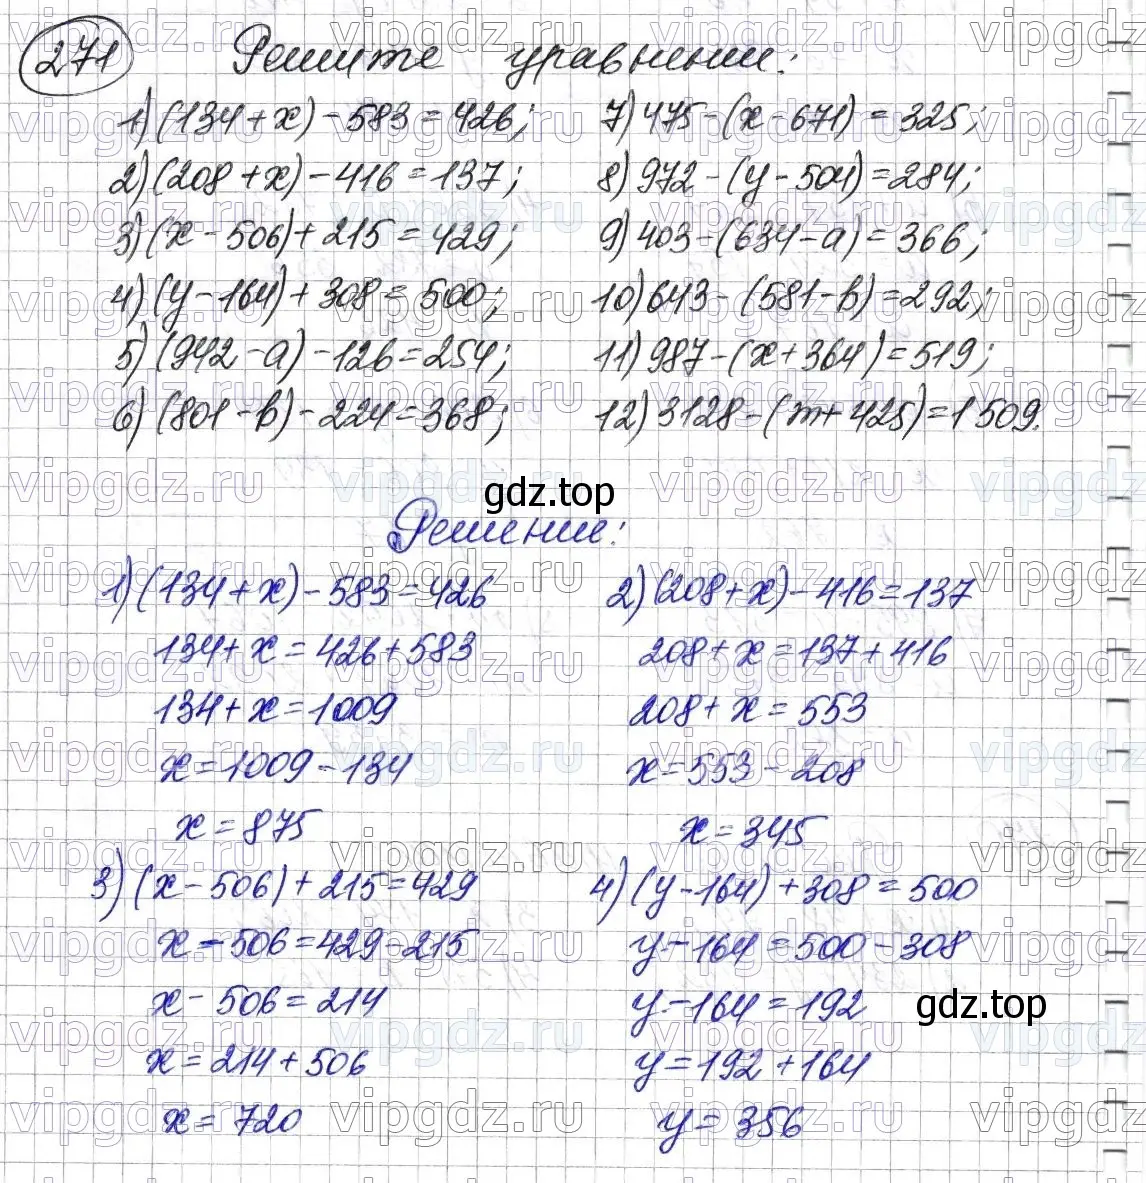 271 Решите уравнении:
1) (134+x)-583=426; 7) 475-(x-671)=325;
2) (208+x)-416=137; 8) 972-(y-504)=284;
3) (x-506)+215=429; 9) 403-(634-a)=366;
4) (y-164)+308=500; 10) 643-(581-b)=292;
5) (942-a)-126=254; 11) 987-(x+364)=519;
6) (801-b)-224=368; 12) 3128-(m+425)=1509.
gdz.top
Решение:
1) (134+x)-583=426 2) (208+x)-416=137
134+x=426+583 208+x=137+416
134+x=1009 208+x=553
x=1009-134 x=553-208
x=875 x=345
3) (x-506)+215=429 4) (y-164)+308=500
x-506=429-215 y-164=500-308
x-506=214 y-164=192 gdz.top
x=214+506 y=192+164
x=720 y=356
vipgdz.ru